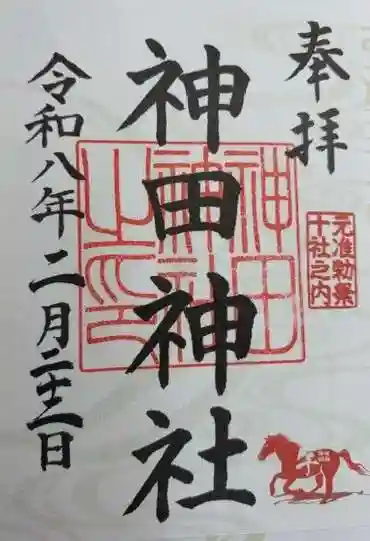 奉拝
元准勅祭
十社之内
神田神社
神田
神社
之印
令和八年二月二十二日